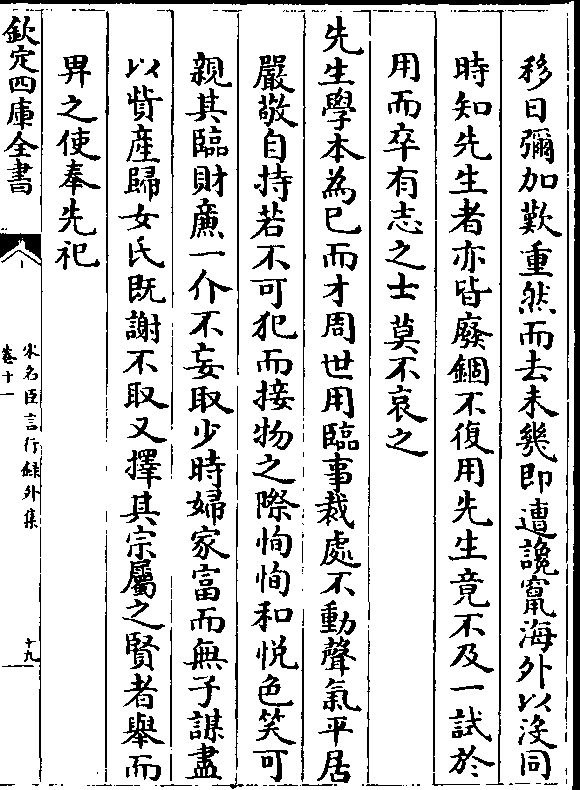 移日彌加歎重然而去未幾即遭讒竄海外以沒同
時知先生者亦皆廢錮不復用先生竟不及一試於
用而卒有志之士莫不哀之
先生學本為已而才周世用臨事裁處不動聲氣平居
嚴敬自持若不可犯而接物之際恂恂和悅色笑可
親其臨財廉一介不妄取少時婦家富而無子謀盡
以貲産歸女氏既謝不取又擇其宗屬之賢者舉而
畀之使奉先祀
欽定四庫全書
宋名臣言行録外集
卷十一
十九